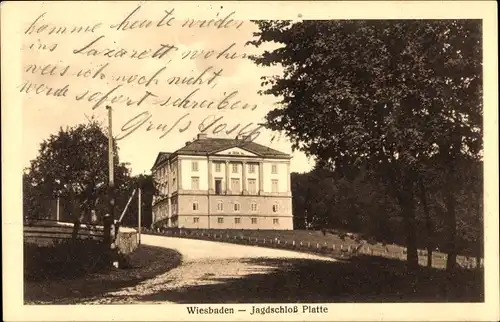 komme heute wieder
ins Lazarett wohin
weis ich noch nicht,
werde sofort schreiben
Gruß
Wiesbaden — Jagdschloß Platte